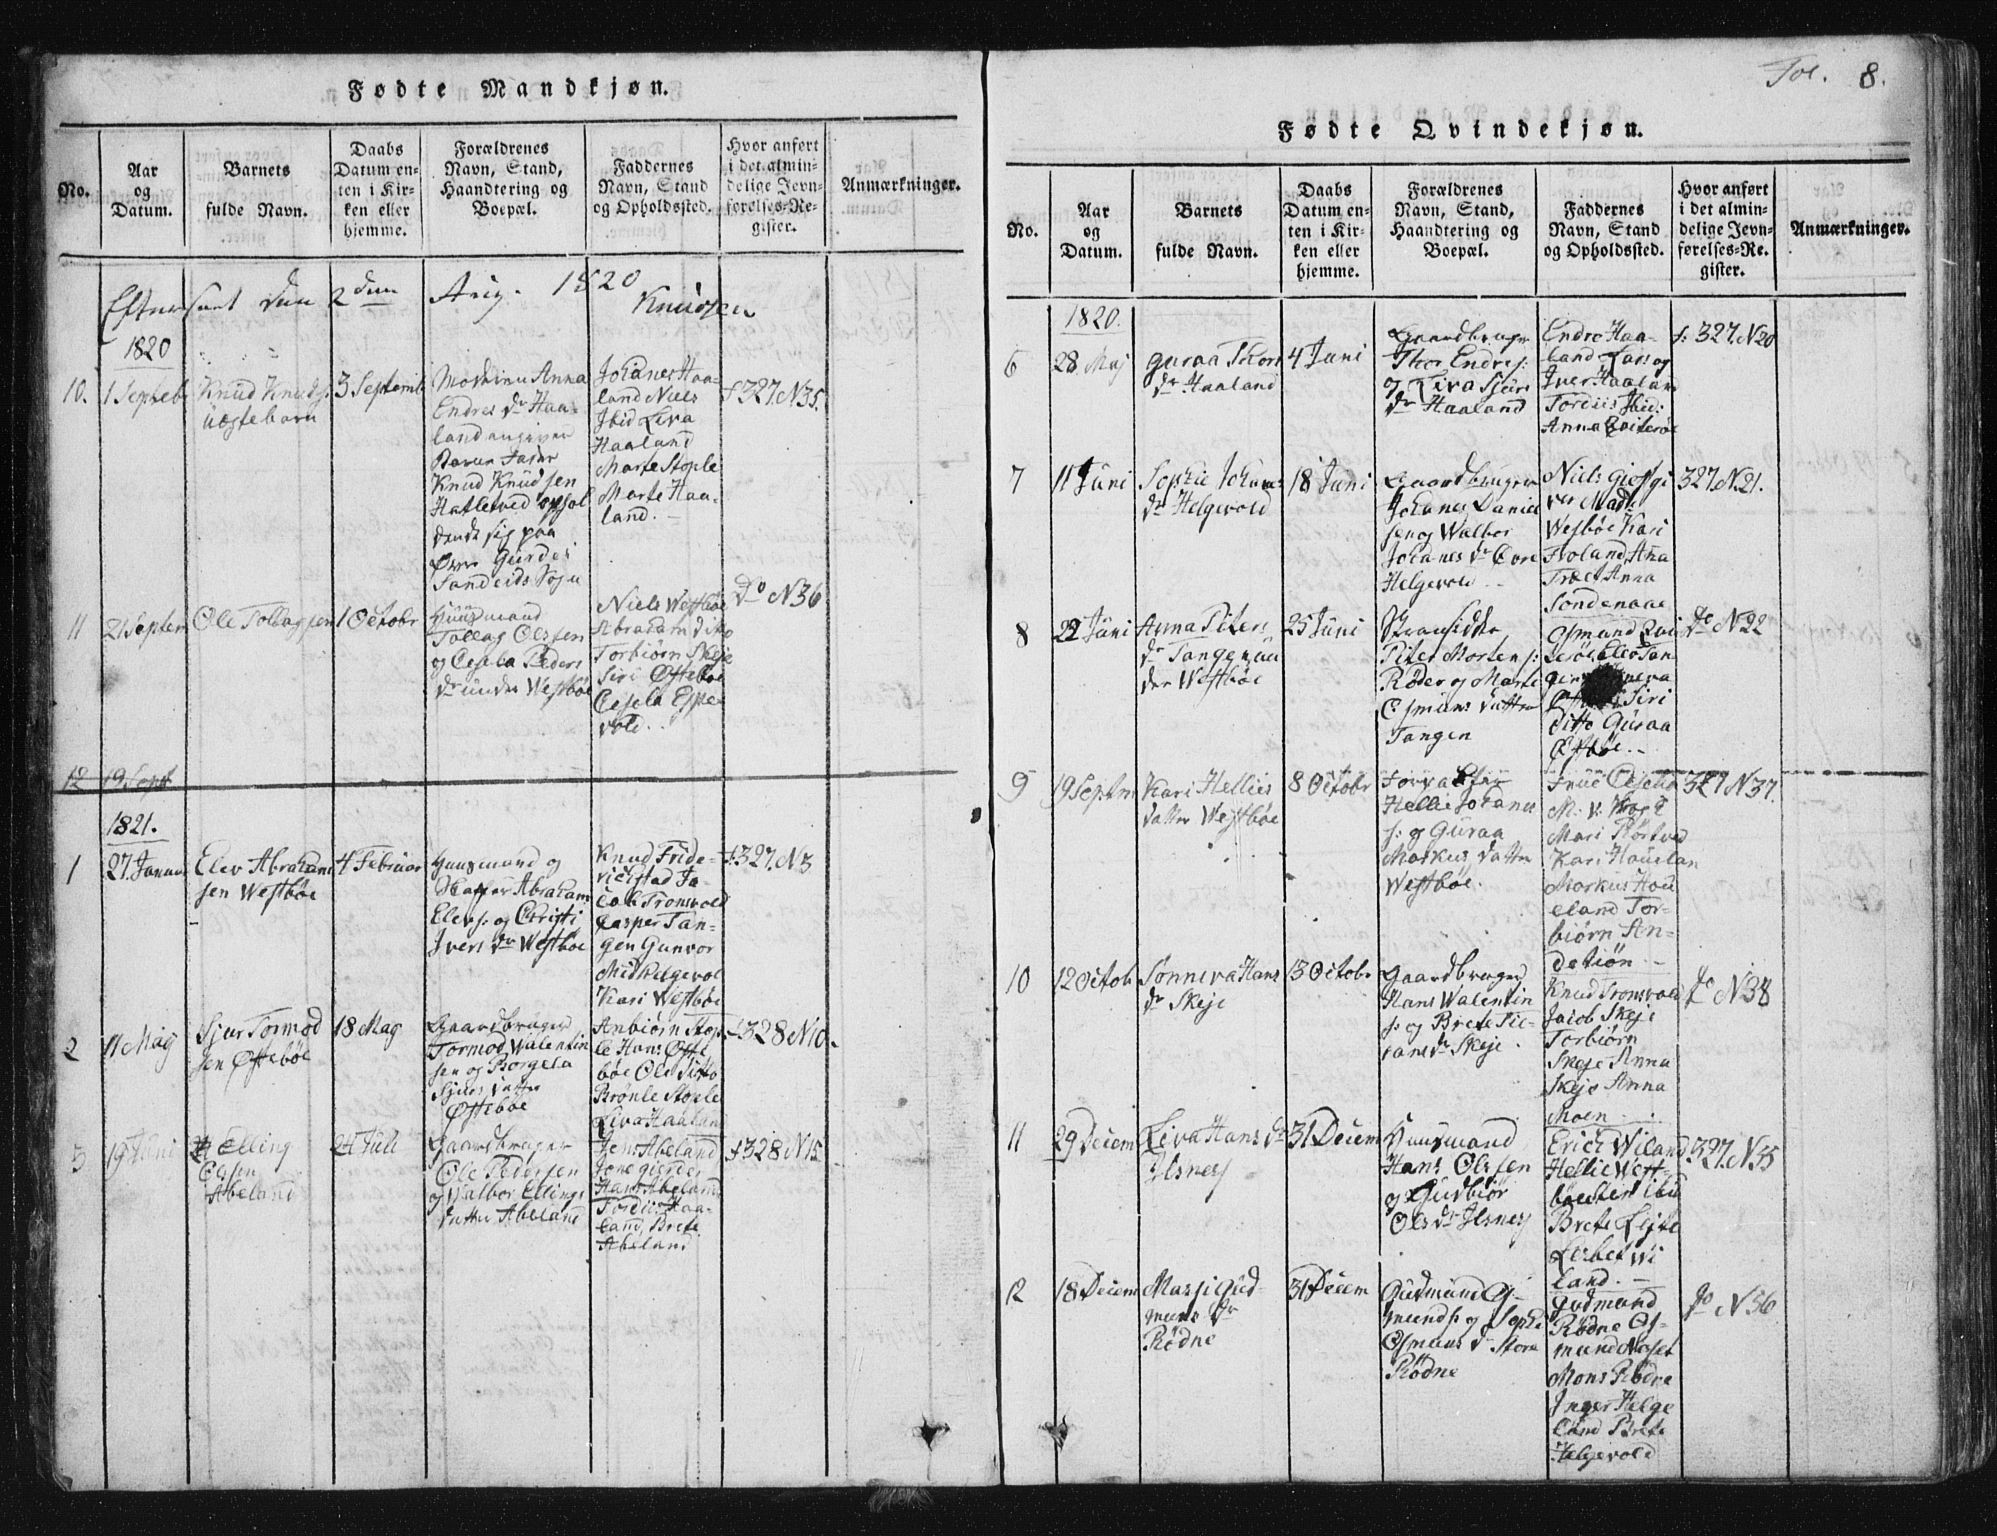 Fødte Mandkjøn.
No.
Aar
og
Datum.
Barnets
fulde Navn.
Daabs
Datum en-
ten i Kir-
ken eller
hjemme.
Forældrenes
Navn, Stand,
Haandtering og
Boepæl.
Faddernes
Navn, Stand
og Opholdssted.
Hvor anført
i det almin-
delige Jevn-
førelses-Re-
gister.
Anmærkninger.
Efterseet den 2den Aug. 1820
Knudsen
1820
10.
1 Septeb
Knud Knuds:
uægtebarn
3 Septemb
Anna
Endres dr Haa-
land angiven
Barne Fader
Knud Knudsen
Hatletved ophol
dende sig paa
Øvre
Sandeids Sogn
Johanes Haa-
land Niels
Ibid Liva
Haaland
Marte Stople
Marte Haa-
land. –
f 327. N35.
11
21 Septem
Ole Tollagsen
1 Octobr
Huusmand
Tollag Olsen
og Cesela Peders
dr under Westbøe
Niels Westbøe
Abraham dito
Torbiørn Skeje
Siri Øftebøe
Cesela Espe-
vold.
Do N36
12 19 Sept
1821.
1
27. Januar
Elev Abraham
sen Westbøe
4 Februar
Huusmand og
Abraham
Elevs: og Christi
Ivers dr Westbøe
Knud Fride-
richstad Ja-
cob Tronsvold
Casper Tan-
gen Gunvor
Midhelgevol
Kari Westbøe
f. 327. N3
2
11 Maj
Sjur Tormod
sen Øftebøe
18 Maj
Gaardbruger
Tormod Walentin
sen og Borgela
Sjurs datter
Øftebøe
Anbiørn Stop-
le Hans Øfte
bøe Ole Ditto
Brønle Stople
Liva Haalan
f. 328 N10.
3
19 Juni
Elling
Olsen
Abeland
24 Juli
Gaardbruger
Ole Pedersen
og Walbor Ellings
datter Abeland
Jens Abeland
Jone gierde
Hans Abeland
Tordis Haa-
land, Brete
Abeland
f 328 N15
Fol. 8.
Fødte Qvindekjøn.
No.
Aar
og
Datum.
Barnets
fulde Navn.
Daabs
Datum en-
ten i Kir-
ken eller
hjemme.
Forældrenes
Navn, Stand,
Haandtering og
Boepæl.
Faddernes
Navn, Stand
og Opholdssted.
Hvor anført
i det almin-
delige Jevn-
førelses-Re-
gister.
Anmærkninger.
1820.
6
28 Maj
Guraa Thors
dr Haaland
4 Juni
Gaardbruger
Thor Endres:
og Liva Sjurs
dr Haaland
Endre Haa-
land Lars og
Iver Haaland
Tordiis Ibid:
Anna
f. 327. N20
7
11 Juni
Sophie Johans
dr Helgevold
18 Juni
Gaardbruger
Johanes Daniel
sen og Walbor
Johanes dr
Helgevold
Niels
Westbøe Kari
Froland, Ana
Træet Anna
Søndenaae
327. N21.
8
22 Juni
Anna Peters
dr Tangen un
der Westbøe
25 Juni
Strandsidder
Peter Mortens:
Røder og Marte
Osmuns datter
Tangen
Osmund
Elev Tan
gen
Siri
ditto Guraa
Øftebøe. –
do N22
9
19 Septm
Kari Hellies
datter Westbøe
8 Octobr
Hellie Johanes
s: og Guraa
Markus datter
Westbøe.
Frue
M. v. Krogh
Mari Rørtved
Kari Houelan
Markus Hou
eland Tor-
biørn An-
detiøn –
327 N37.
10
12 Octob
Sønneva Hans
dr Skeje
13 Octobr
Gaardbruger
Hans Walentin
s: og Brete
dr Skeje.
Knud Tronsvold
Jacob Skeje
Torbiørn
Skeje Anna
Skeje Anna
Moen
do N38
11
29 Decem
Liva Hans dr
Ilsnes
31 Decem
Huusmand
Hans Olssen
og Gudbiør
Ols dr Ilsnes
Erich Wiland
Hellie West-
bøe ibid
Brete Lejte
Lisbet Wi
land. –
327. N55
12
18 Decem
Massi Gud-
muns dr
Rødne
31 Decem
Gudmund Os-
munds: og Sophi
Osmuns dr Store
Rødne
Gudmund
Rødne Os-
mund
Mons Rødne
Inger Helge
land Brete
Helgevold
do N56